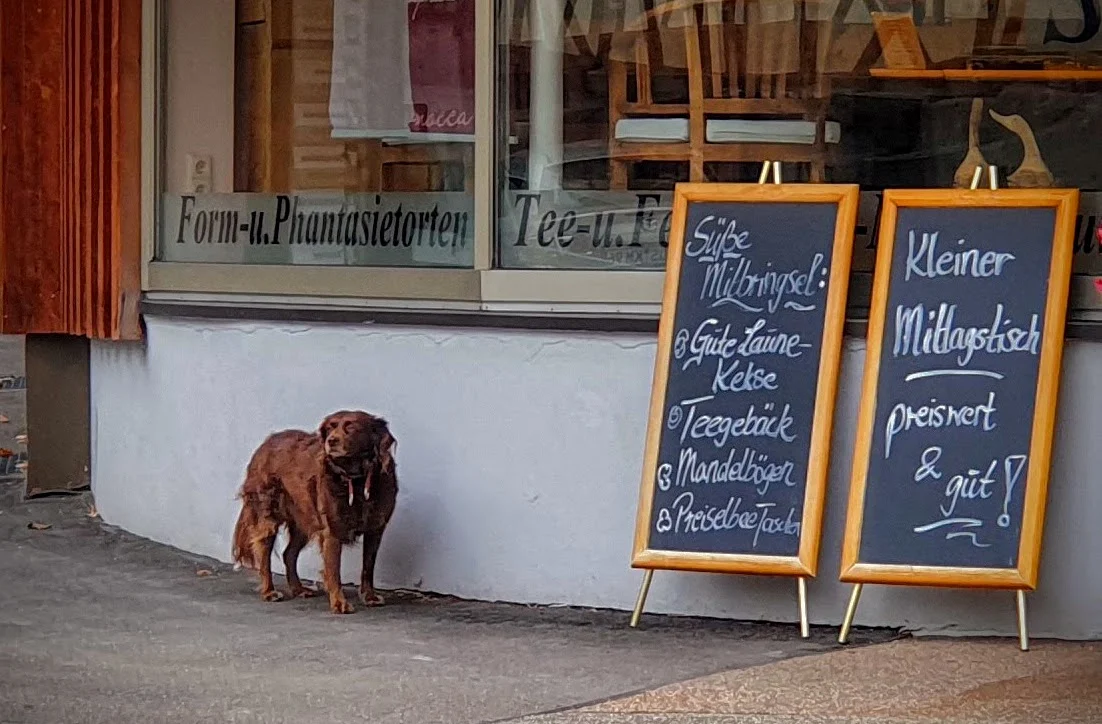 Form-u.Phantasietorten
Tee-u.Fe
Süße
Mitbringsel:
Gute Laune-
Kekse
Teegebäck
Mandelbögen
PreiselbeeTaschen
Kleiner
Mittagstisch
preiswert
& gut!